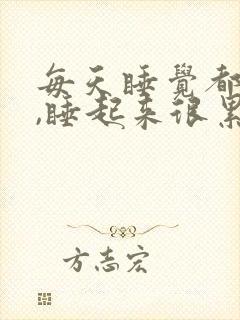 每天睡覺都
,睡起来很累
方志宏